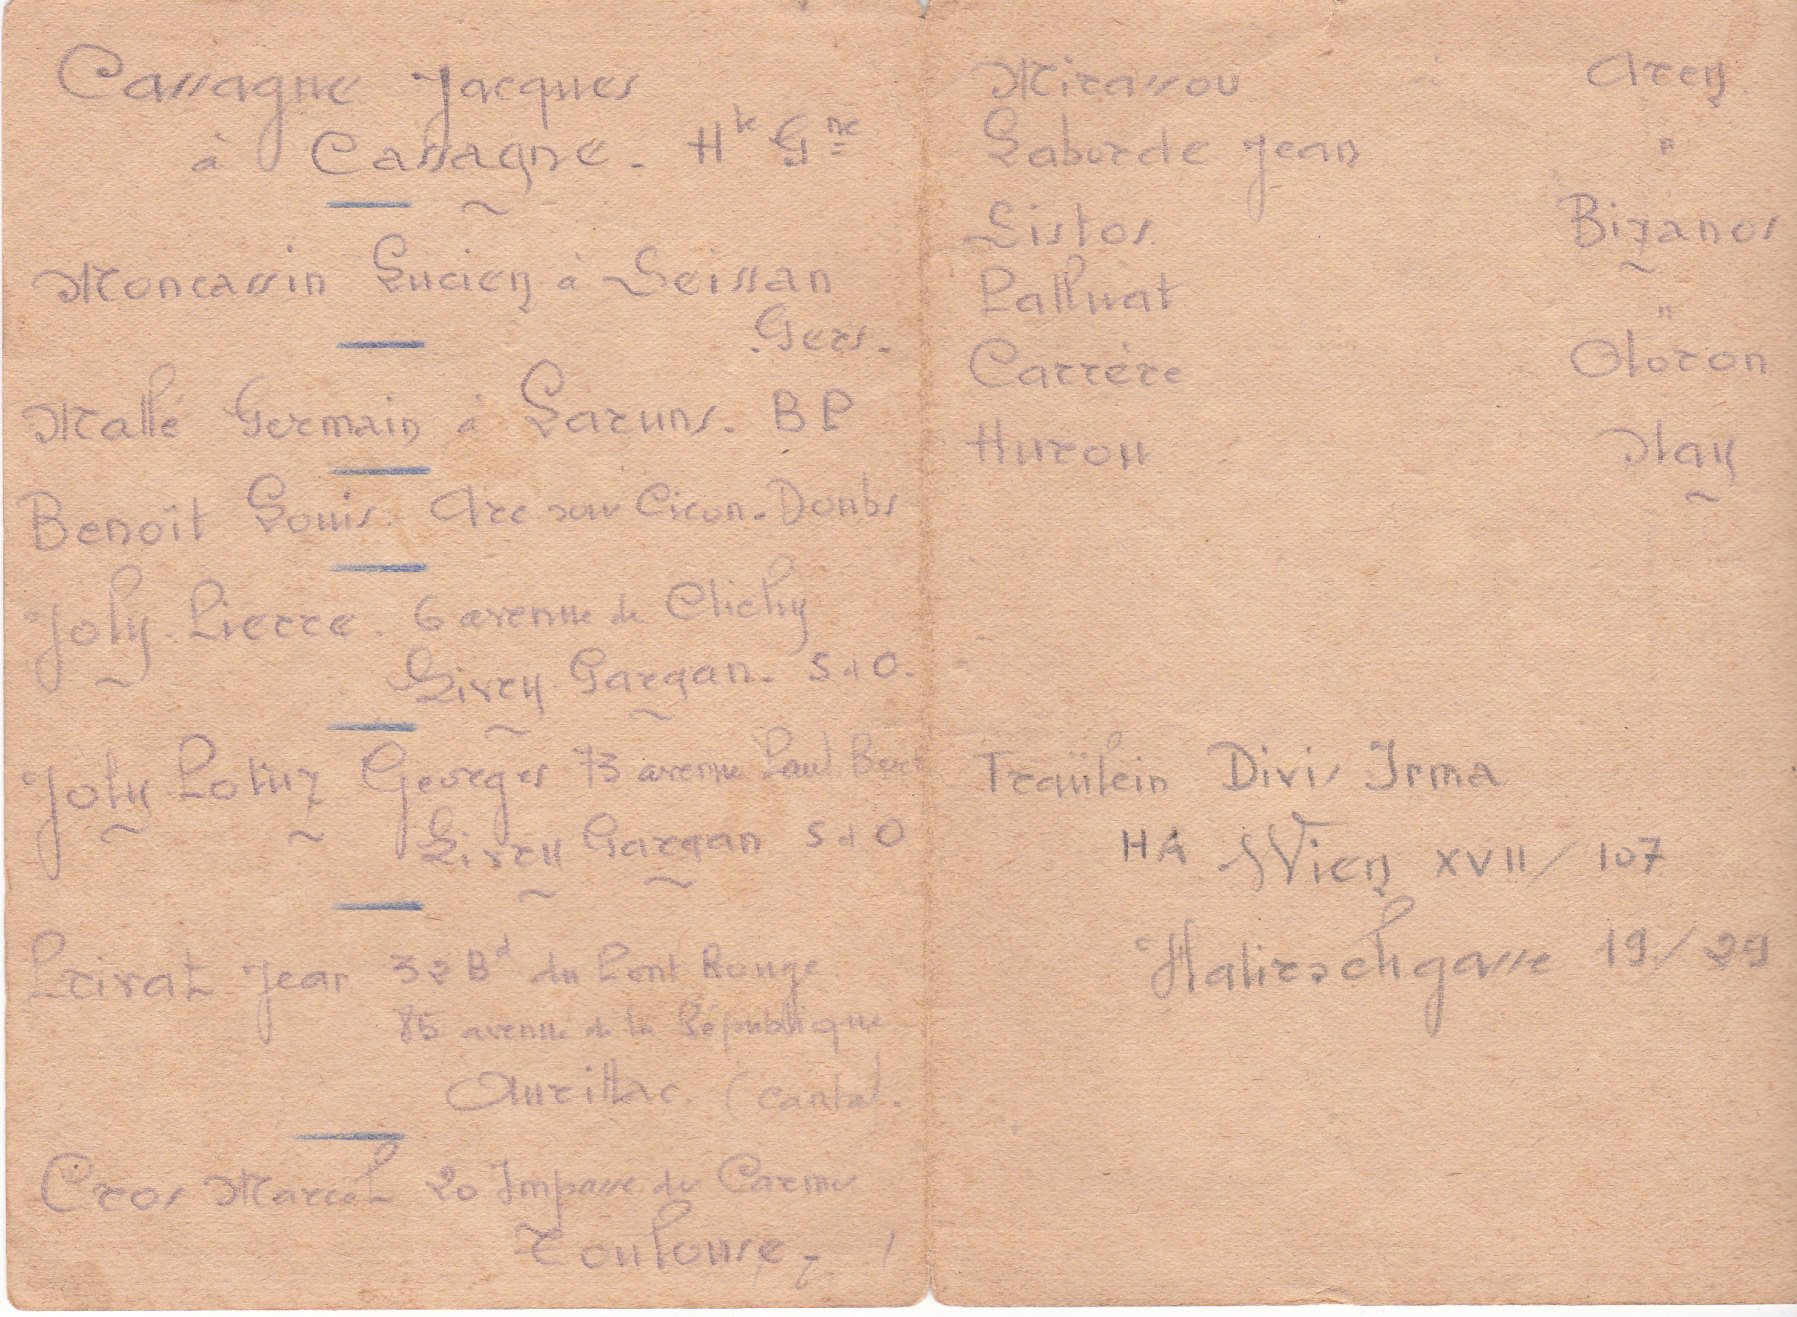 Cassagne Jacques
à Cassagne. Hte Gne
Moncassin Lucien à Seissan
Gers.
Mallé Germain à Laruns. BP
Benoît Louis. Arc sous Cicon. Doubs
Joly. Pierre. 6 avenue de Clichy
Livry Gargan. S d O.
Joly Georges 73 avenue Paul Bert
Livry Gargan S d O
Privat Jean 32 Bd du Pont Rouge
85 avenue de la République
Aurillac. (Cantal.
Cros Marcel 20 Impasse des Carmes
Toulouse.
Mirassou à Aren.
Laborde Jean "
Listos. Bizanos
Palluat "
Carrère Oloron
Nay
Fraülein Divis Irma
HA Wien XVII/107
19/29